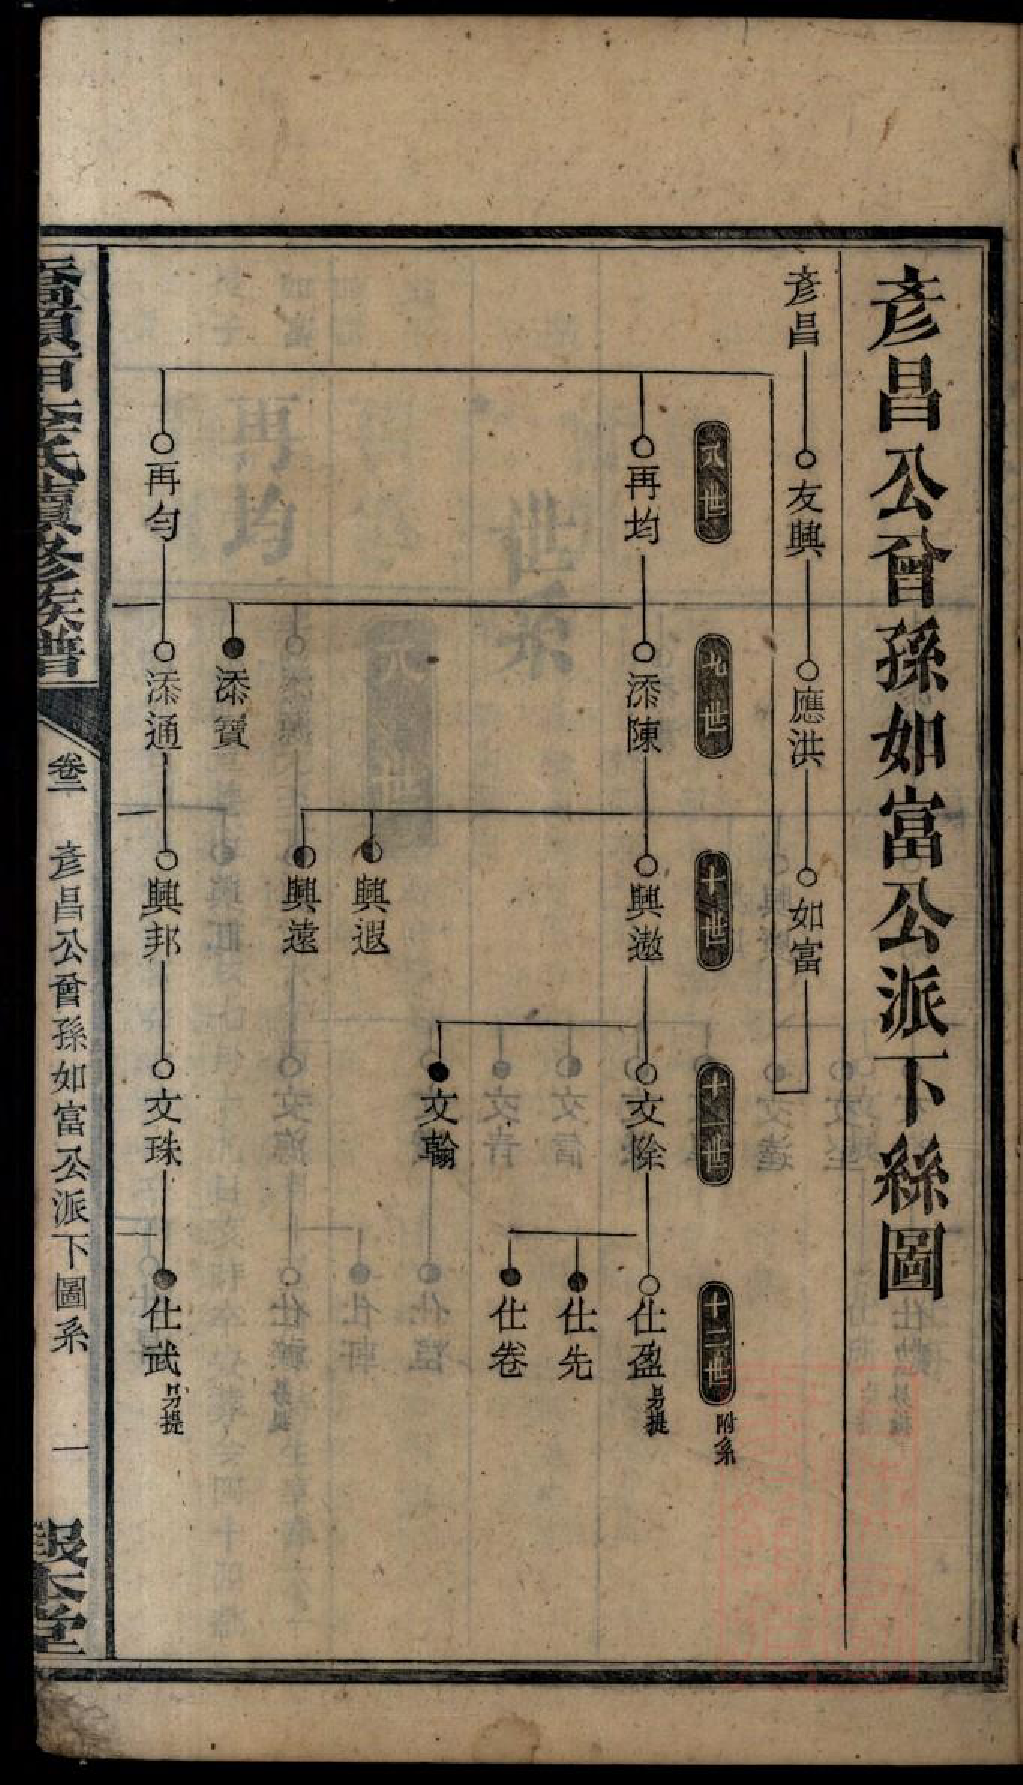 彥昌公曾孫如富公派下絲圖
彥昌
友興
應洪
如富
八世
九世
十世
十一世
十二世
附系
再均
添陳
興遨
文除
仕盈
另提
仕先
仕卷
文翰
興遐
興遠
添寶
再勻
添通
興邦
文珠
仕武
另提
李氏續修族譜
卷二
彥昌公曾孫如富公派下圖系
一
報本堂